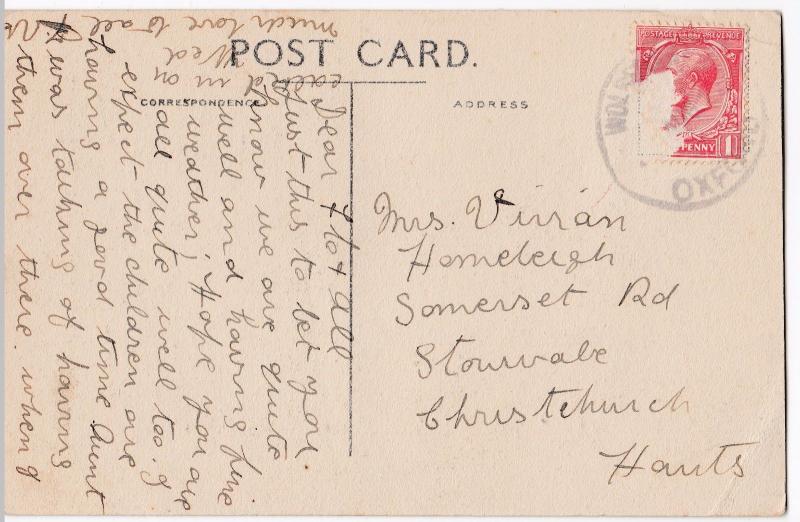 POST CARD.
CORRESPONDENCE
ADDRESS
POSTAGE REVENUE
PENNY 1
OXF
Mrs. Vivian
Homeleigh
Somerset Rd
Stourvale
Christchurch
Hants
Dear & all
Just this to let you
know we are quite
well and having fine
weather; Hope you are
all quite well too. I
expect the children are
having a good time Aunt
was talking of having
them over there. when
in on
Wed
much love to all